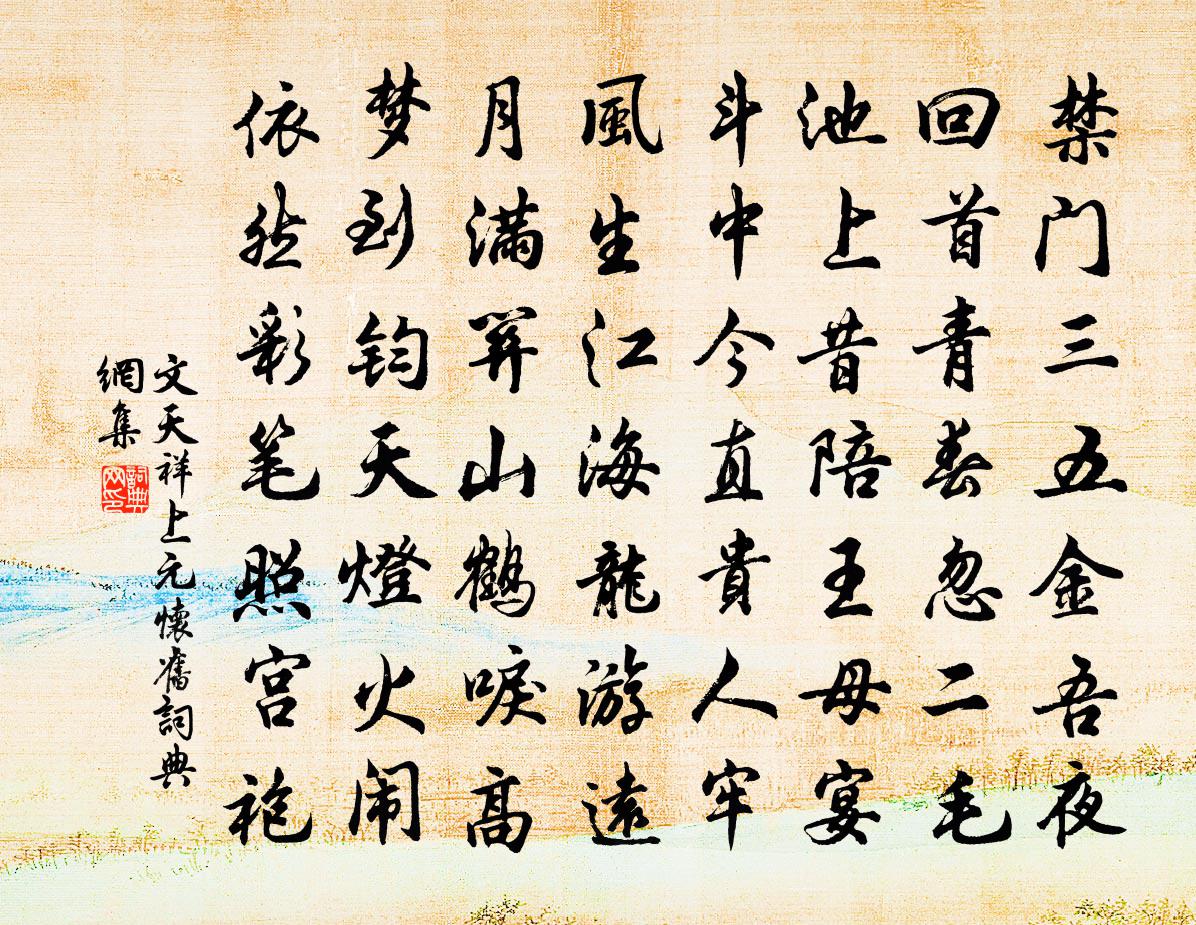 禁门三五金吾夜
回首青春忽二毛
池上昔陪王母宴
斗中今直貴人牢
風生江海龍游遠
月满関山鶴唳高
梦到钧天燈火闹
依然彩笔照宫袍
文天祥上元懷舊詞典
網集
詞典
网印